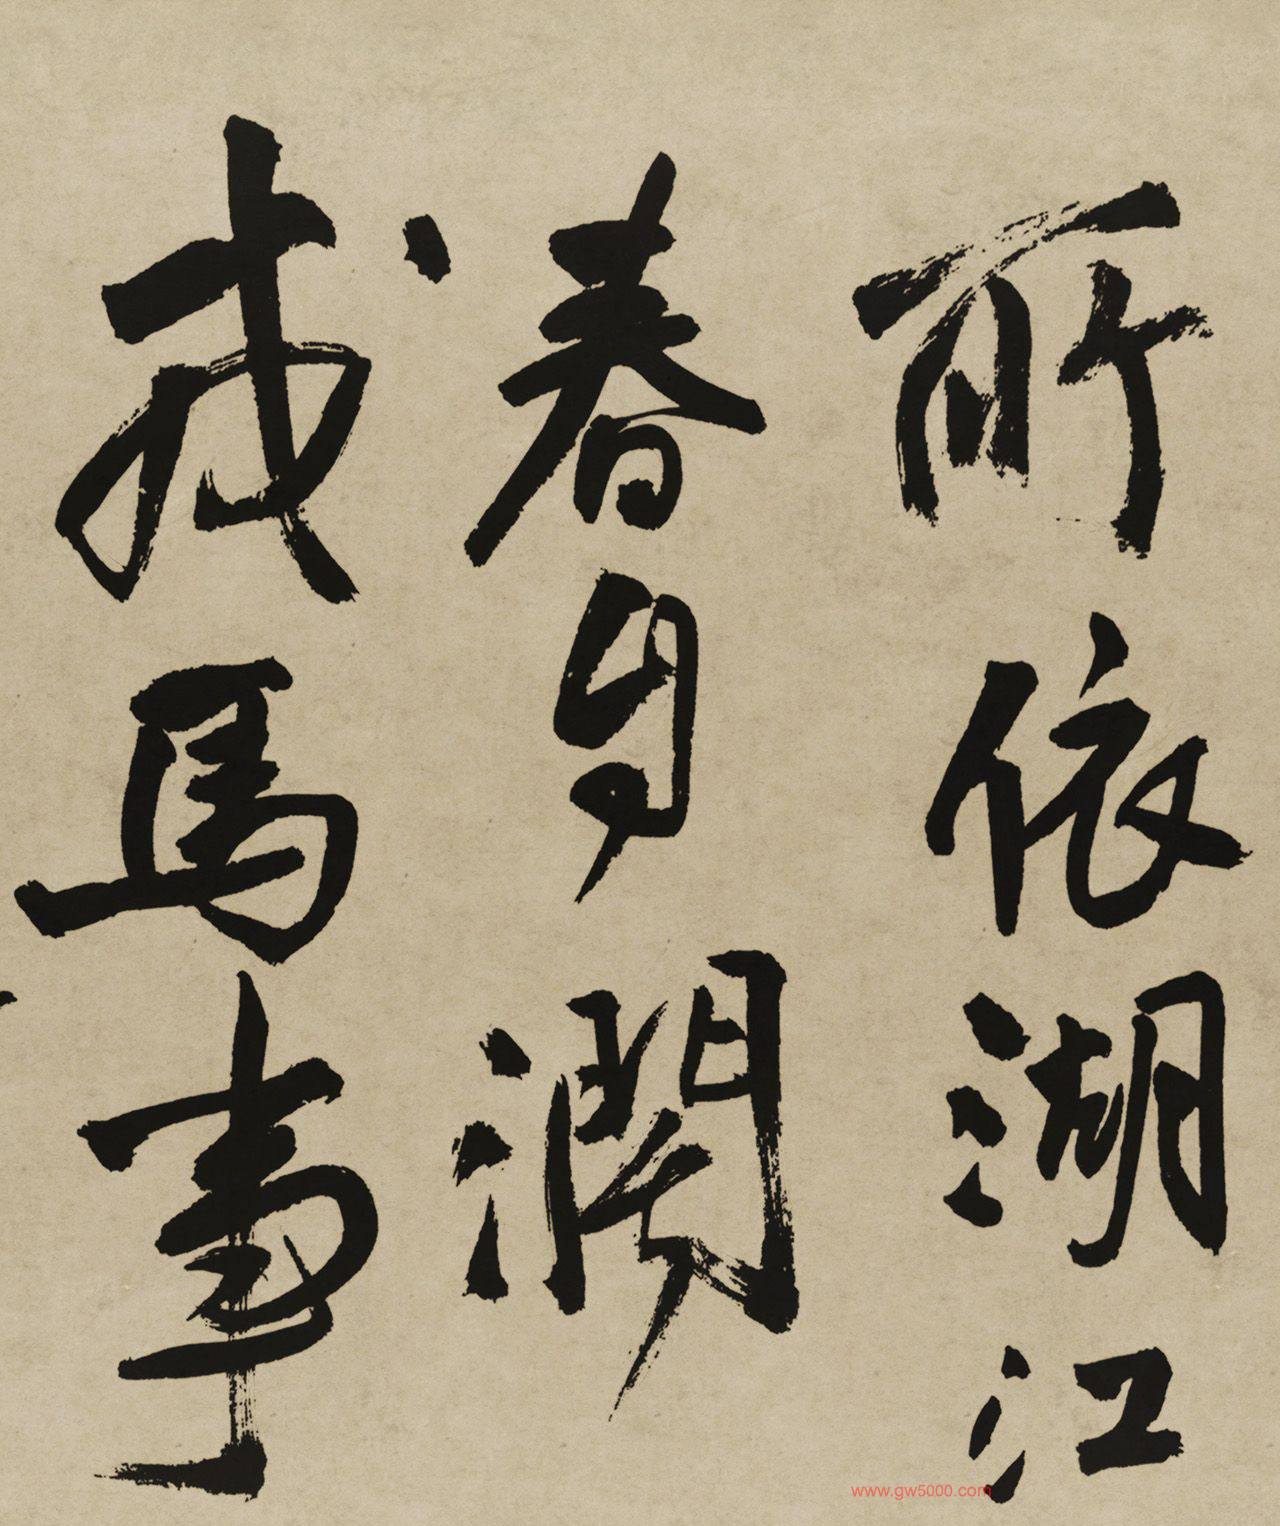 所依湖江
春自濶
戎馬事
www.gw5000.com